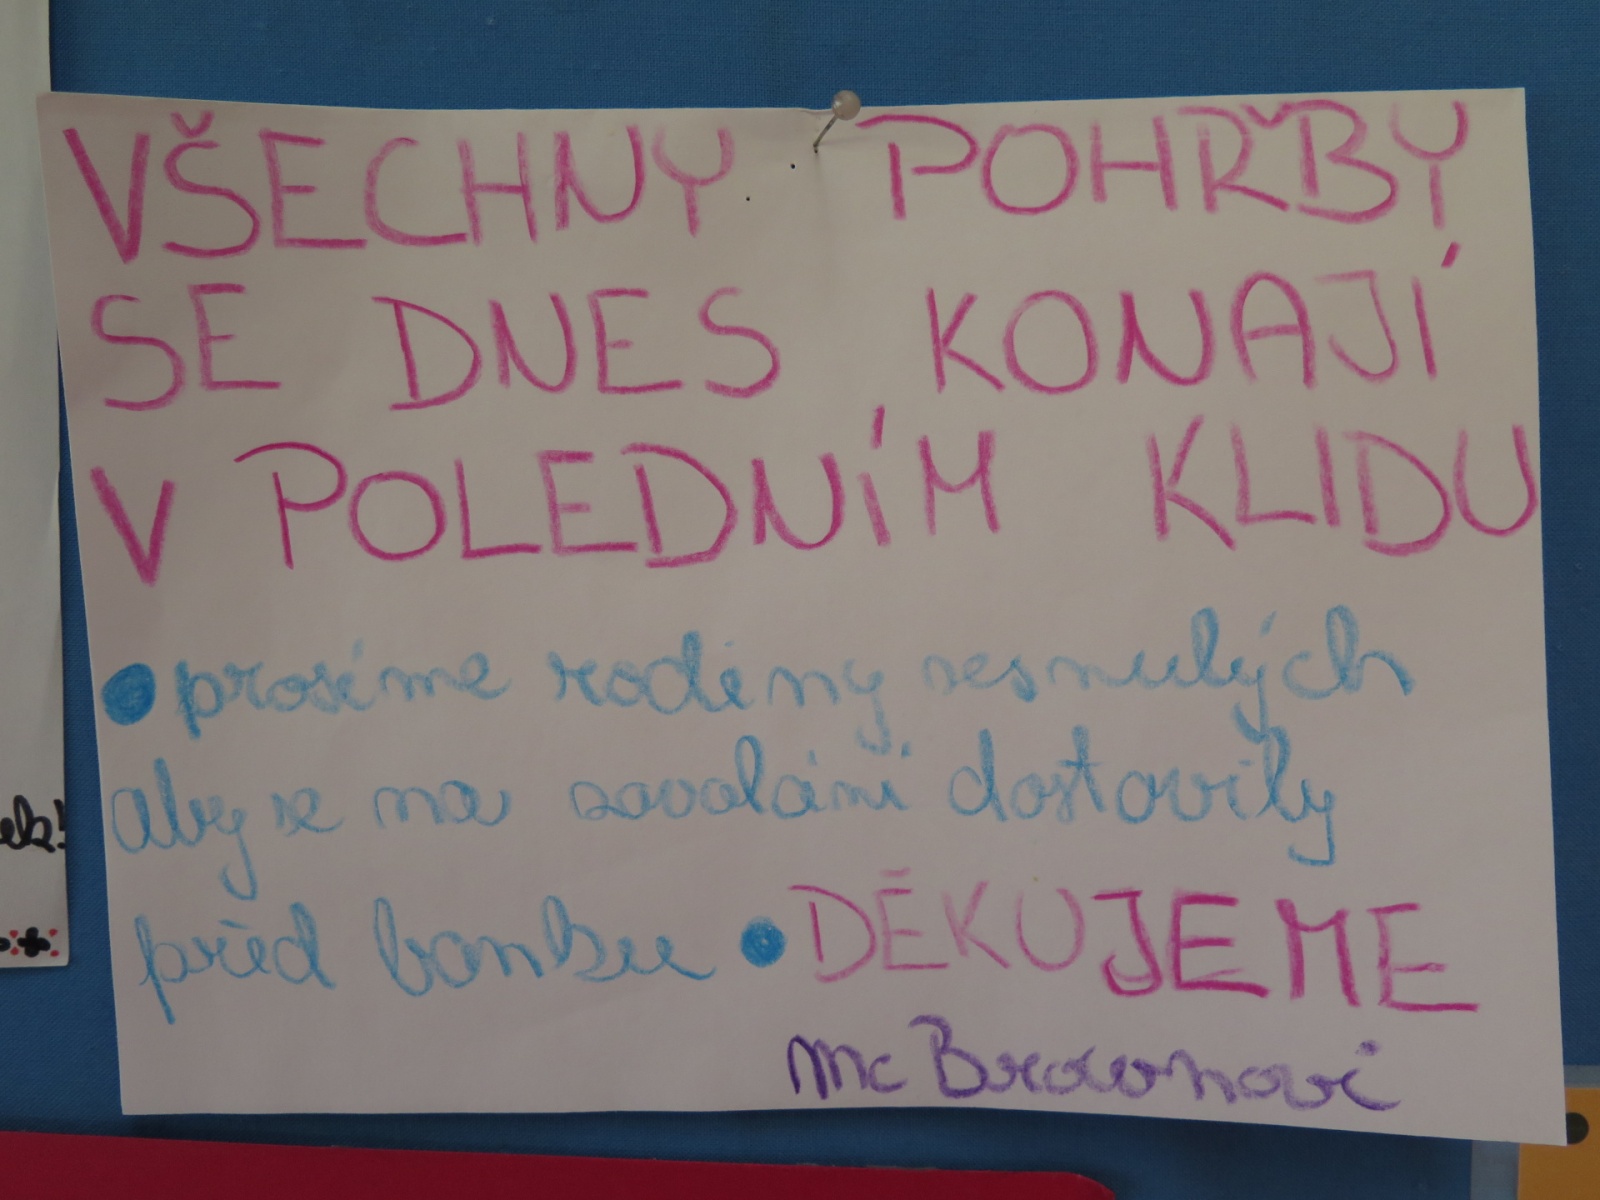 VŠECHNY POHŘBY
SE DNES KONAJÍ
V POLEDNÍM KLIDU
● prosíme rodiny zesnulých
aby se na zavolání dostavily
před banku ● DĚKUJEME
Mc Brownovi